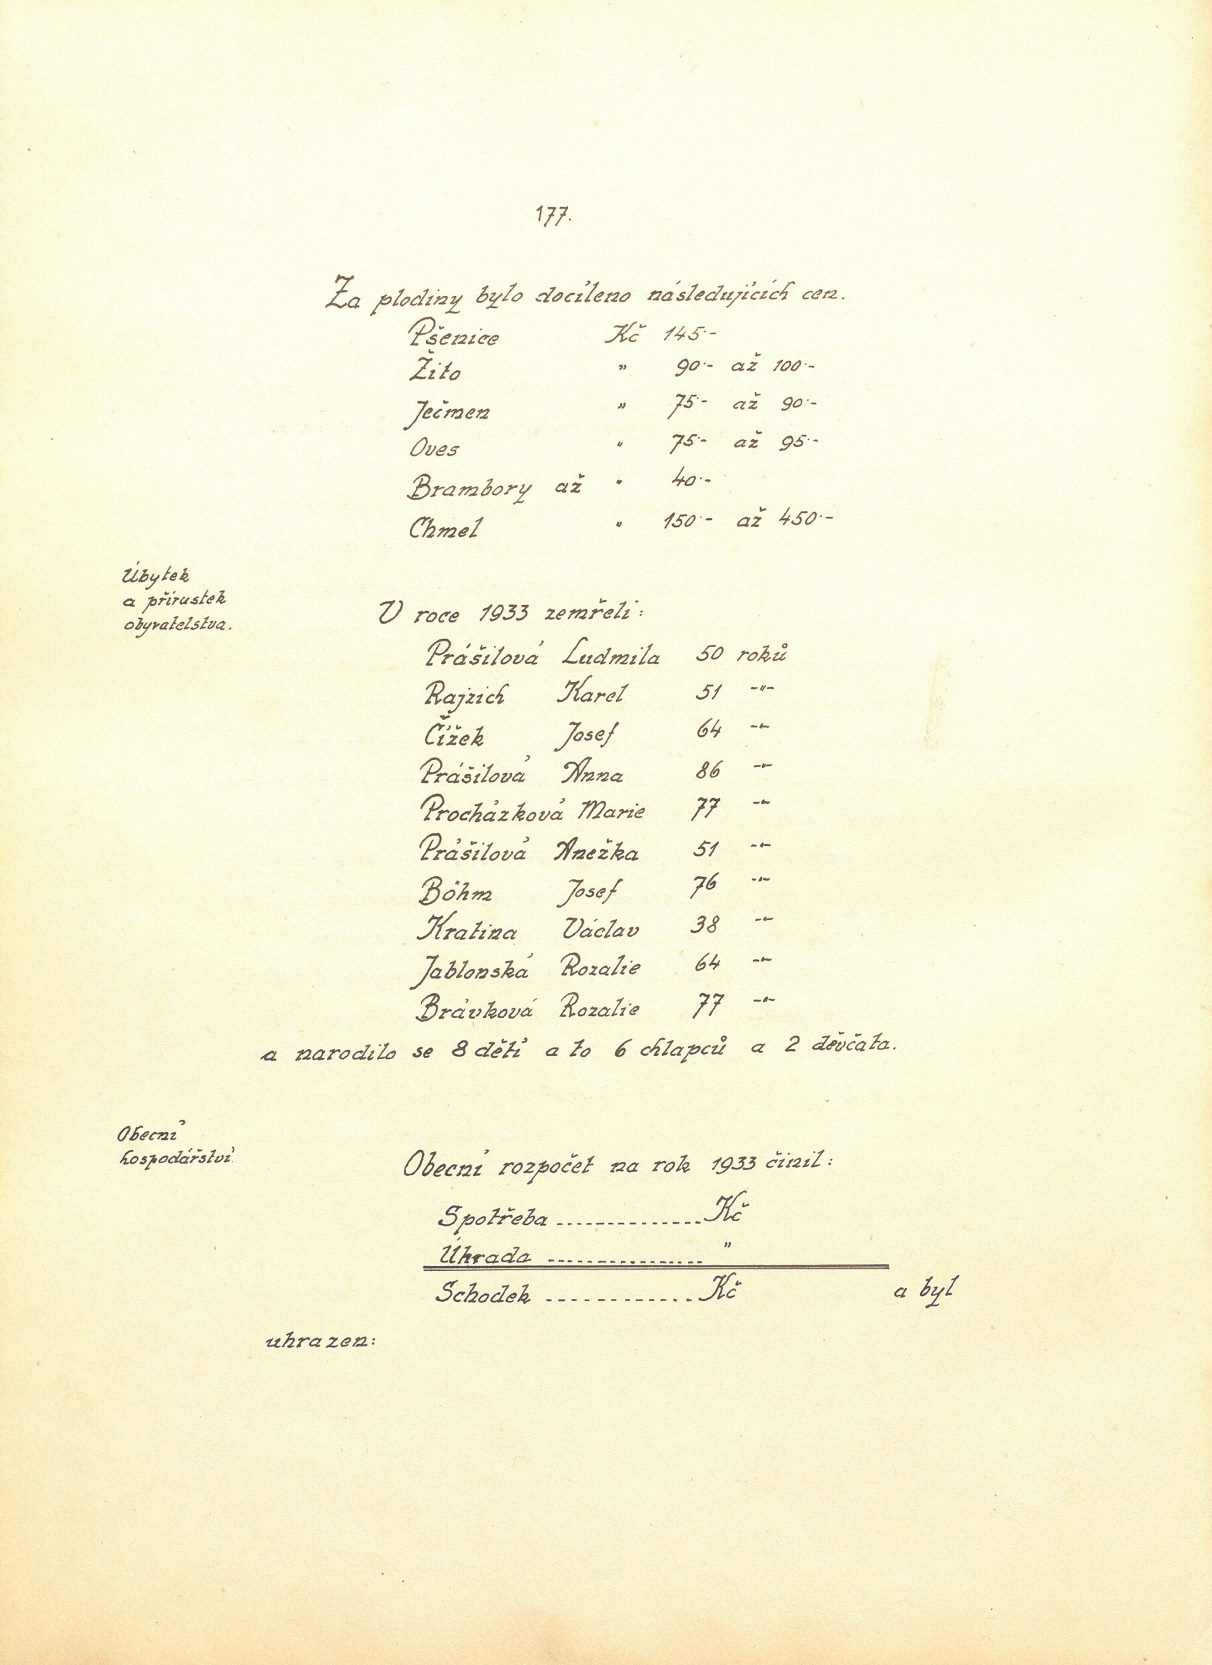 177.
Za plodiny bylo docíleno následujících cen.
Pšenice Kč 145·-
Žito " 90·- až 100·-
Ječmen " 75·- až 90·-
Oves " 75·- až 95·-
Brambory až " 40·-
Chmel " 150·- až 450·-
Úbytek
a přírustek
obyvatelstva.
V roce 1933 zemřeli:
Prášilová Ludmila 50 roků
Rajzich Karel 51 -"-
Čížek Josef 64 -"-
Prášilová Anna 86 -"-
Procházková Marie 77 -"-
Prášilová Anežka 51 -"-
Böhm Josef 76 -"-
Kratina Václav 38 -"-
Jablonská Rozalie 64 -"-
Brávková Rozalie 77 -"-
a narodilo se 8 dětí a to 6 chlapců a 2 děvčata.
Obecní
hospodářství
Obecní rozpočet na rok 1933 činil:
Spotřeba .............. Kč
Úhrada ............... "
Schodek ............. Kč a byl
uhrazen: